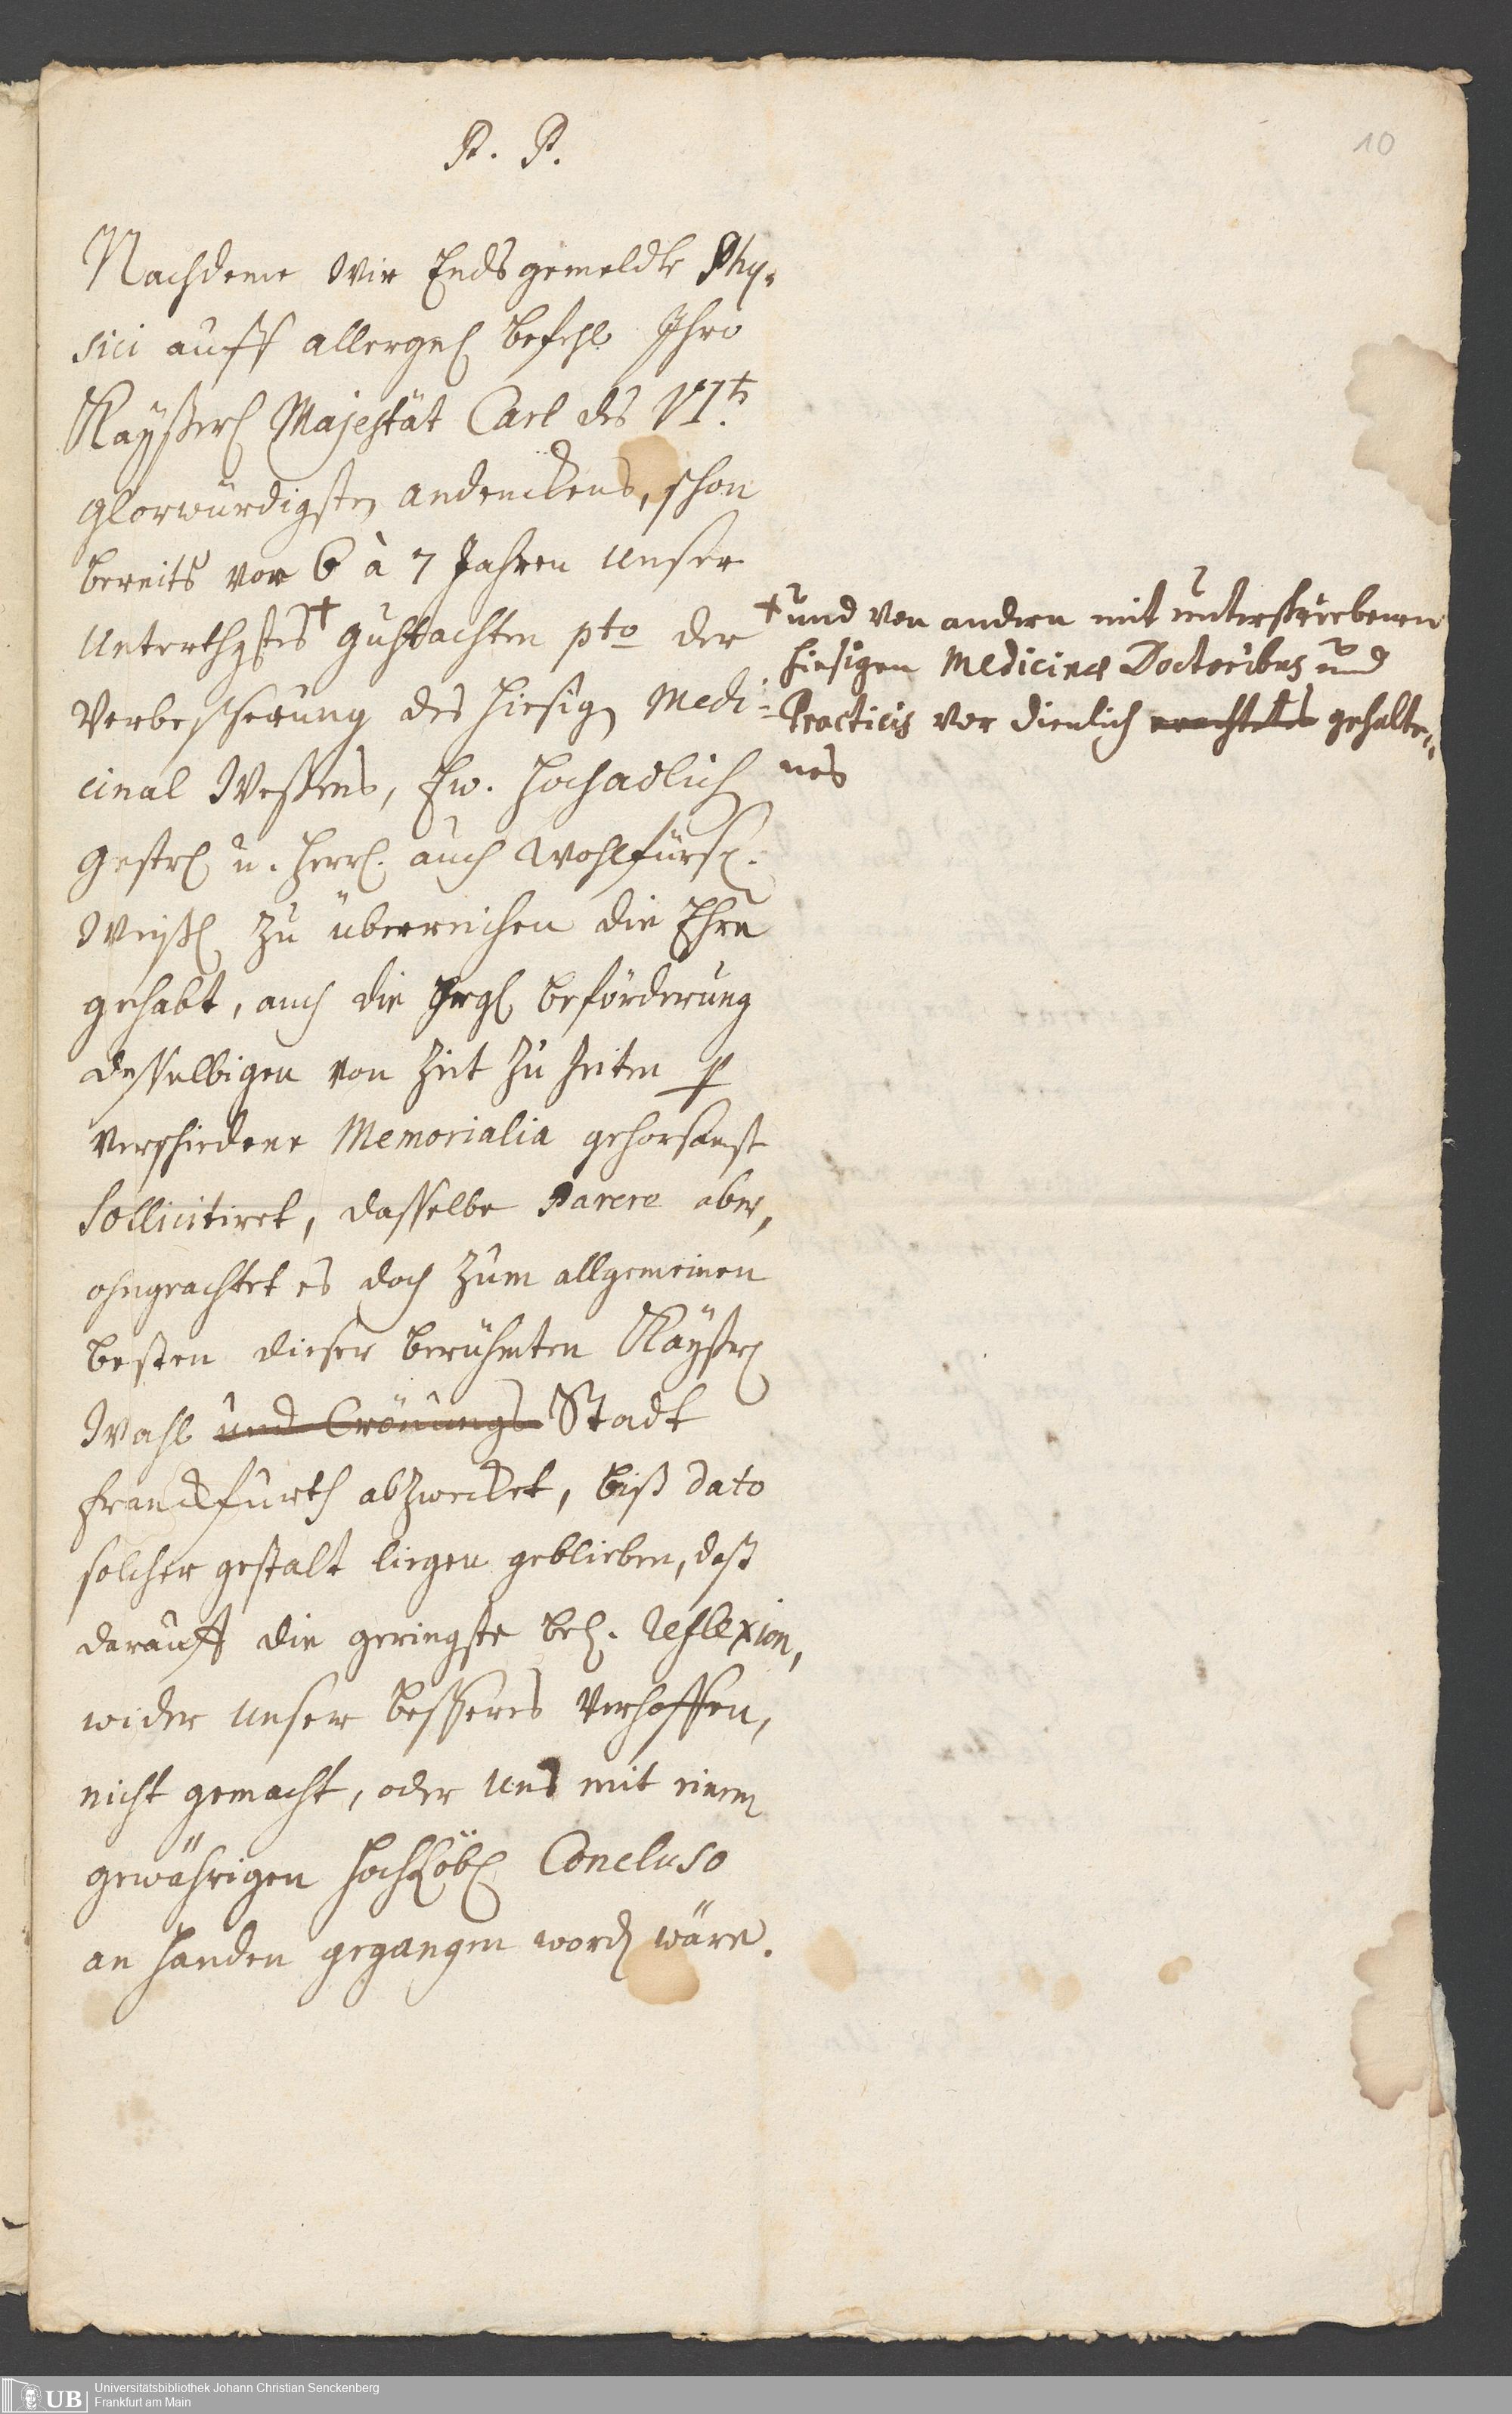 P. P.
10
Nachdeme Wir Endsgemeldte Phy-
sici auff allergn. befehl Ihro
Kayßerl. Majestät Carl des VIt.
Glorwürdigsten andenckens, schon
bereits vor 6 à 7 Jahren unser
Unterthgstes † guhtachten pto der
Verbesserung des hiesig Medi-
cinal Weßens, Ew. Hochadlich
Gestrl. u. Herrl. auch Wohlfürs.
Weißl. zu überreichen die Ehre
gehabt, auch die beförderung
desselbigen von Zeit zu Zeiten p
verschiedene Memorialia gehorsamst
sollicitiret, dasselbe Parere aber,
ohngeachtet es doch zum allgemeinen
besten dieser berühmten Kayßerl.
Wahl und Crönungs Stadt
Franckfurth abzwecket, biß dato
solcher gestalt liegen geblieben, daß
darauff die geringste Reflexion,
wider unser besseres Verhoffen,
nicht gemacht, oder uns mit einem
gewährigen Hochlöbl. Concluso
an handen gegangen word wäre.
† und von andern mit unterschriebenen
hiesigen Medicinæ Doctoribus und
Practicis vor dienlich erachtetes gehalte-
nes
UB
Universitätsbibliothek Johann Christian Senckenberg
Frankfurt am Main